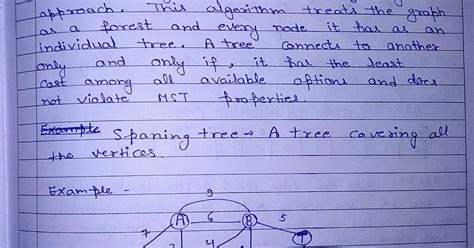 approach. This algorithm treats the graph
as a forest and every node it has as an
individual tree. A tree connects to another
only and only if, it has the least
cost among all available options and does
not violate MST properties.
Example Spaning tree → A tree covering all
the vertices.
Example -
9
A 6 B 5
7 4 T